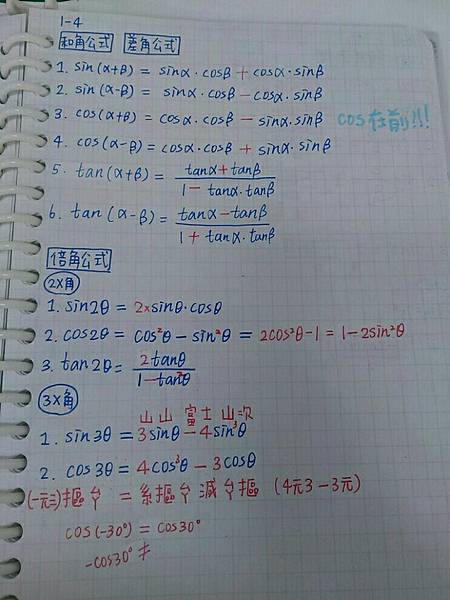 1-4
和角公式 差角公式
1. sin(α+β) = sinα·cosβ + cosα·sinβ
2. sin(α-β) = sinα·cosβ - cosα·sinβ
3. cos(α+β) = cosα·cosβ - sinα·sinβ cos在前!!!
4. cos(α-β) = cosα·cosβ + sinα·sinβ
5. tan(α+β) = tanα+tanβ / 1-tanα·tanβ
6. tan(α-β) = tanα-tanβ / 1+tanα·tanβ
倍角公式
2x角
1. sin2θ = 2×sinθ·cosθ
2. cos2θ = cos²θ - sin²θ = 2cos²θ-1 = 1-2sin²θ
3. tan2θ = 2tanθ / 1-tan²θ
3x角
山山 富士 山次
1. sin3θ = 3sinθ - 4sin³θ
2. cos3θ = 4cos³θ - 3cosθ
摳台 = 摳台減台摳 (4元3-3元)
cos(-30°) = cos30°
-cos30° ≠